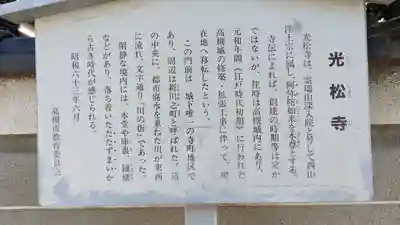 光松寺
光松寺は、雲瑞山深入院と号して西山
浄土宗に属し、阿弥陀如来を本尊とする。
寺伝によれば、創建の時期等は定か
ではないが、往時は高槻城内にあり、
元和年間(江戸時代初期)に行われた
高槻城の修築・拡張工事に伴って、現
在地へ移転したという。
この門前は、城下唯一の寺町地区で
あり、周辺は新川之町と呼ばれた。道
の中央に、都市排水を兼ねた川が東西
に流れ、文字通り「川の街」であった。
閑静な境内には、本堂や庫裏、鐘楼
などがあり、落ち着いたたたずまいか
ら古き時代が感じられる。
昭和六十三年六月
高槻市教育委員会